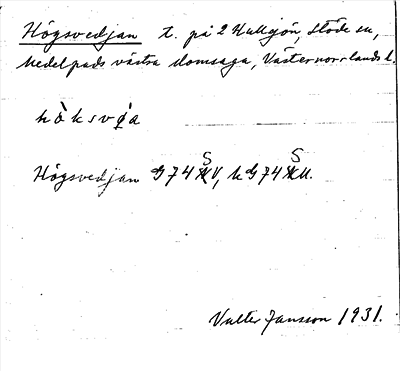 Högsvedjan t. på 2 Hullsjön, Stöde sn,
Medelpads västra domsaga, Västernorrlands l.
hòksvɇ̀a
Högsvedjan G74SV, h G74SU.
Valter Jansson 1931.